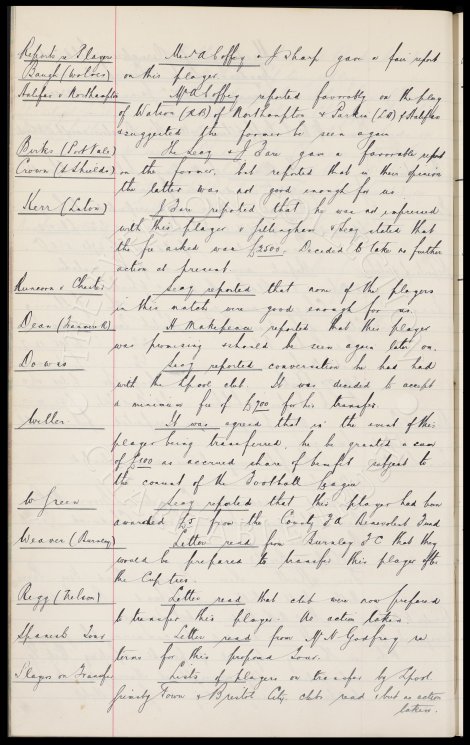 Reports re Players Messrs A Coffey & J Sharp gave a fair report
Baugh (Wolves) on this player.
Halifax v Northampton Mr A Coffey reported favorably on the play
of Watson (R.B) of Northampton & Parker (L.B) of Halifax
& suggested the former be seen again
Birks (Port Vale) The Secy & J Fare gave a favorable report
Crown (S Shields) on the former, but reported that in their opinion
the latter was not good enough for us.
Kerr (Luton) J Fare reported that he was not impressed
with this player v Gillingham, & Secy stated that
the fee asked was £2500. Decided to take no further
action at present.
Runcorn v Chester Secy reported that none of the players
in this match were good enough for us.
Dean (Tranmere R) H Makepeace reported that this player
was promising & should be seen again later on.
Downs Secy reported conversation he had had
with the Lpool club. It was decided to accept
a minimum fee of £700 for his transfer.
Miller It was agreed that in the event of this
player being transferred, he be granted a sum
of £500 as accrued share of benefit subject to
the consent of the Football League
W Green Secy reported that this player had been
awarded £5 from the County F.A Benevolent Fund
Weaver (Burnley) Letter read from Burnley F C that they
would be prepared to transfer this player after
the Cup ties.
Regg (Nelson) Letter read that club were now prepared
to transfer this player. No action taken.
Spanish Tour Letter read from M N Godfrey re
terms for this proposed Tour.
Players on Transfer Lists of players on transfer by Lpool
Grimsby Town & Bristol City clubs read, but no action
taken.